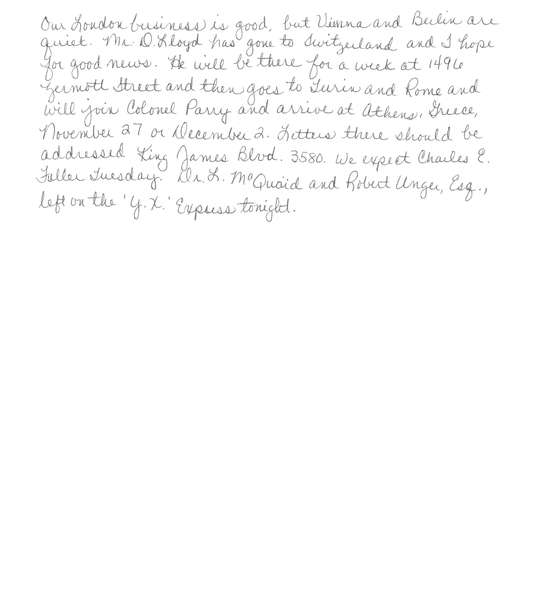 Our London business is good, but Vienna and Berlin are
quiet. Mr. D. Lloyd has gone to Switzerland and I hope
for good news. He will be there for a week at 1496
Zermott Street and then goes to Turin and Rome and
will join Colonel Parry and arrive at Athens, Greece,
November 27 or December 2. Letters there should be
addressed King James Blvd. 3580. We expect Charles E.
Fuller Tuesday. Dr. L. McQuaid and Robert Unger, Esq.,
left on the 'Y.X.' Express tonight.